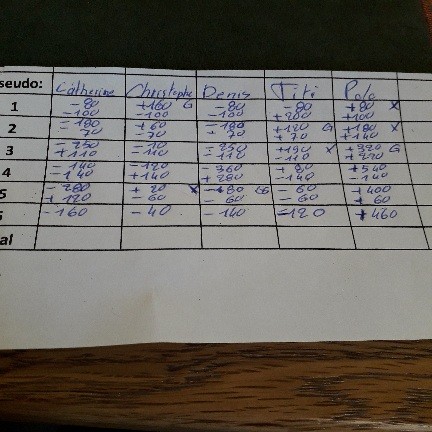 seudo: Catherine Christophe Denis Titi Polo
1 -80 +160 G -80 -80 +80 X
-100 -100 -100 +200 +100
2 -180 +60 -180 +120 G +180 X
-70 -70 -70 +70 +140
3 -250 -10 -250 +190 X +320 G
+110 -110 -110 -110 +220
4 -140 -120 -360 +80 +540
-140 +140 +280 -140 -140
5 -280 +20 X -80 G -60 +400
+120 -60 -60 -60 +60
-160 -40 -140 -120 +460
al